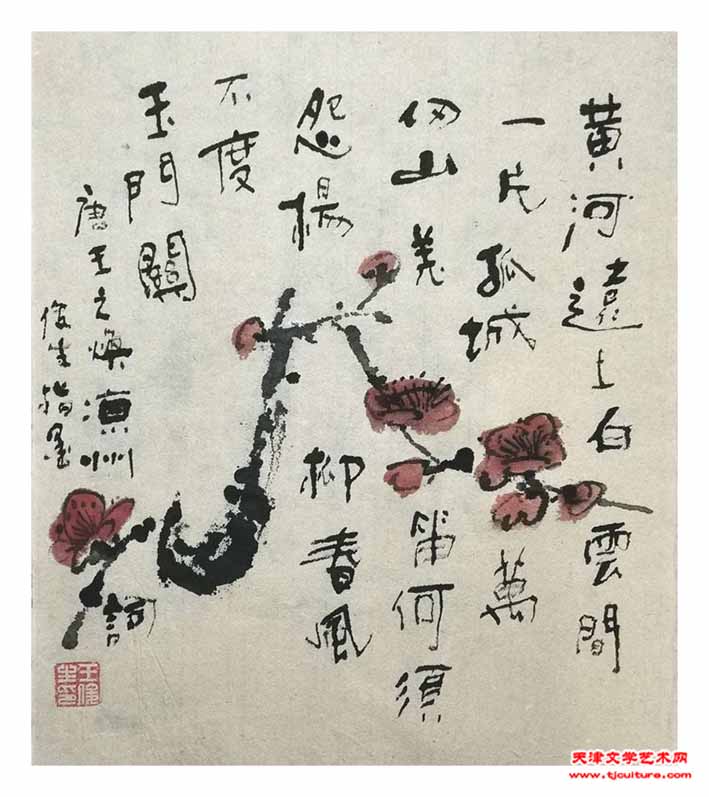 黄河遠上白雲間
一片孤城萬
仞山羌笛何須
怨楊柳春風
不度
玉門關
唐王之煥凉州詞
俊生指墨
王俊生印
天津文学艺术网
www.tjculture.com